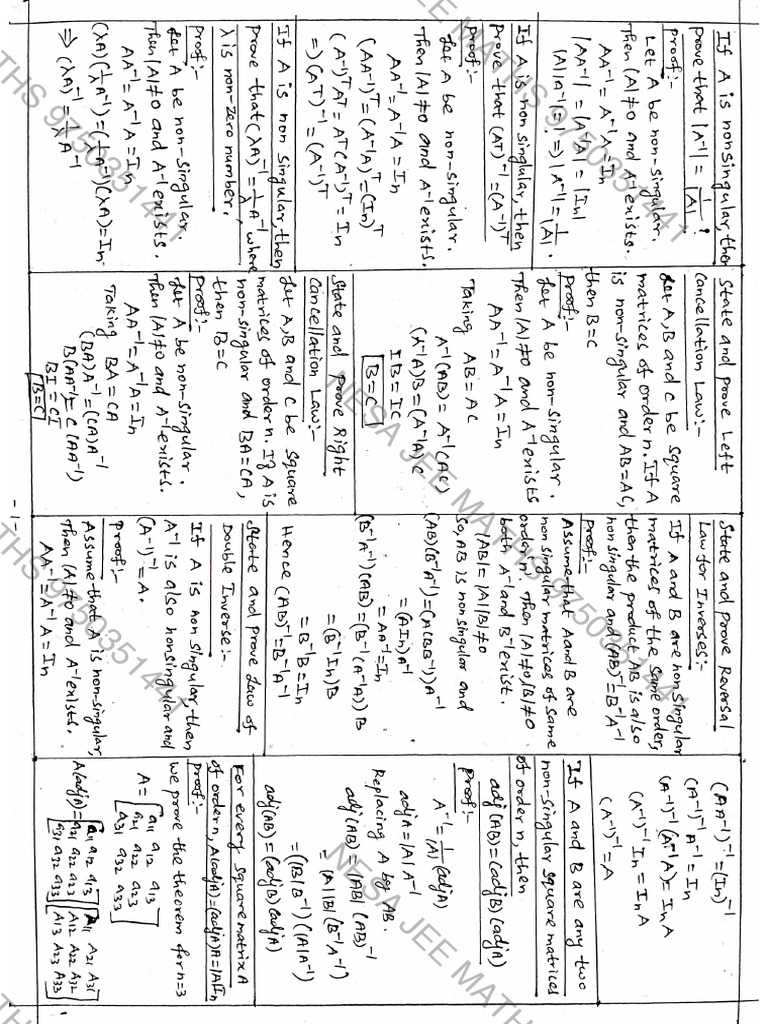 If A is nonsingular, then
prove that |A⁻¹| = 1/|A|:
Proof:-
Let A be non-singular.
Then |A| ≠ 0 and A⁻¹ exists.
AA⁻¹ = A⁻¹A = In
|AA⁻¹| = |A⁻¹A| = |In|
|A||A⁻¹| = 1 ⇒ |A⁻¹| = 1/|A|.
If A is non singlular, then
Prove that (Aᵀ)⁻¹ = (A⁻¹)ᵀ
Proof:-
Let A be non-singular.
Then |A| ≠ 0 and A⁻¹ exists.
AA⁻¹ = A⁻¹A = In
(AA⁻¹)ᵀ = (A⁻¹A)ᵀ = (In)ᵀ
(A⁻¹)ᵀAᵀ = Aᵀ(A⁻¹)ᵀ = In
=) (Aᵀ)⁻¹ = (A⁻¹)ᵀ
If A is non singular, then
prove that (λA)⁻¹ = 1/λ A⁻¹ where
λ is non-zero number.
Proof:-
Let A be non-singular.
Then |A| ≠ 0 and A⁻¹ exists.
AA⁻¹ = A⁻¹A = In
(λA)(1/λ A⁻¹) = (1/λ A⁻¹)(λA) = In
⇒ (λA)⁻¹ = 1/λ A⁻¹
State and prove Left
Cancellation Law:-
Let A, B and C be square
matrices of order n. If A
is non-singular and AB = AC,
then B = C
Proof:-
Let A be non-singular.
Then |A| ≠ 0 and A⁻¹ exists
AA⁻¹ = A⁻¹A = In
Taking AB = AC
A⁻¹(AB) = A⁻¹(AC)
(A⁻¹A)B = (A⁻¹A)C
IB = IC
B = C
State and prove Right
Cancellation Law:-
Let A, B and C be square
matrices of order n. If A is
non-singular and BA = CA,
then B = C
Proof:-
Let A be non-singular.
Then |A| ≠ 0 and A⁻¹ exists.
AA⁻¹ = A⁻¹A = In
Taking BA = CA
(BA)A⁻¹ = (CA)A⁻¹
B(AA⁻¹) = C(AA⁻¹)
BI = CI
B = C
State and prove Reversal
Law for Inverses:-
If A and B are non singular
matrices of the same order,
then the product AB is also
non singular and (AB)⁻¹ = B⁻¹A⁻¹
Proof:-
Assume that A and B are
non singular matrices of same
order 'n'. Then |A| ≠ 0, |B| ≠ 0
both A⁻¹ and B⁻¹ exist.
|AB| = |A||B| ≠ 0
So, AB is non singular and
(AB)(B⁻¹A⁻¹) = (A(BB⁻¹))A⁻¹
= (AIn)A⁻¹
= AA⁻¹ = In
(B⁻¹A⁻¹)(AB) = (B⁻¹(A⁻¹A))B
= (B⁻¹In)B
= B⁻¹B = In
Hence (AB)⁻¹ = B⁻¹A⁻¹
State and prove Law of
Double Inverse:-
If A is non singular, then
A⁻¹ is also nonsingular and
(A⁻¹)⁻¹ = A.
Proof:-
Assume that A is non-singular,
Then |A| ≠ 0 and A⁻¹ exists.
AA⁻¹ = A⁻¹A = In
(AA⁻¹)⁻¹ = (In)⁻¹
(A⁻¹)⁻¹ A⁻¹ = In
(A⁻¹)⁻¹ (A⁻¹A) = InA
(A⁻¹)⁻¹ In = InA
(A⁻¹)⁻¹ = A
If A and B are any two
non-singular square matrices
of order n, then
adj(AB) = (adjB)(adjA)
Proof:-
A⁻¹ = 1/|A| (adjA)
adjA = |A| A⁻¹
Replacing A by AB.
adj(AB) = |AB| (AB)⁻¹
= |A||B| (B⁻¹A⁻¹)
= (|B|B⁻¹)(|A|A⁻¹)
adj(AB) = (adjB)(adjA)
For every square matrix A
of order n, A(adjA) = (adjA)A = |A|In
Proof:-
We prove the theorem for n=3
A = [a11 a12 a13
a21 a22 a23
a31 a32 a33]
A(adjA) = [a11 a12 a13 [A11 A21 A31
a21 a22 a23 A12 A22 A32
a31 a32 a33] A13 A23 A33]
-1-
NESA JEE MATHS 9750351441
NESA JEE MATHS 9750351441